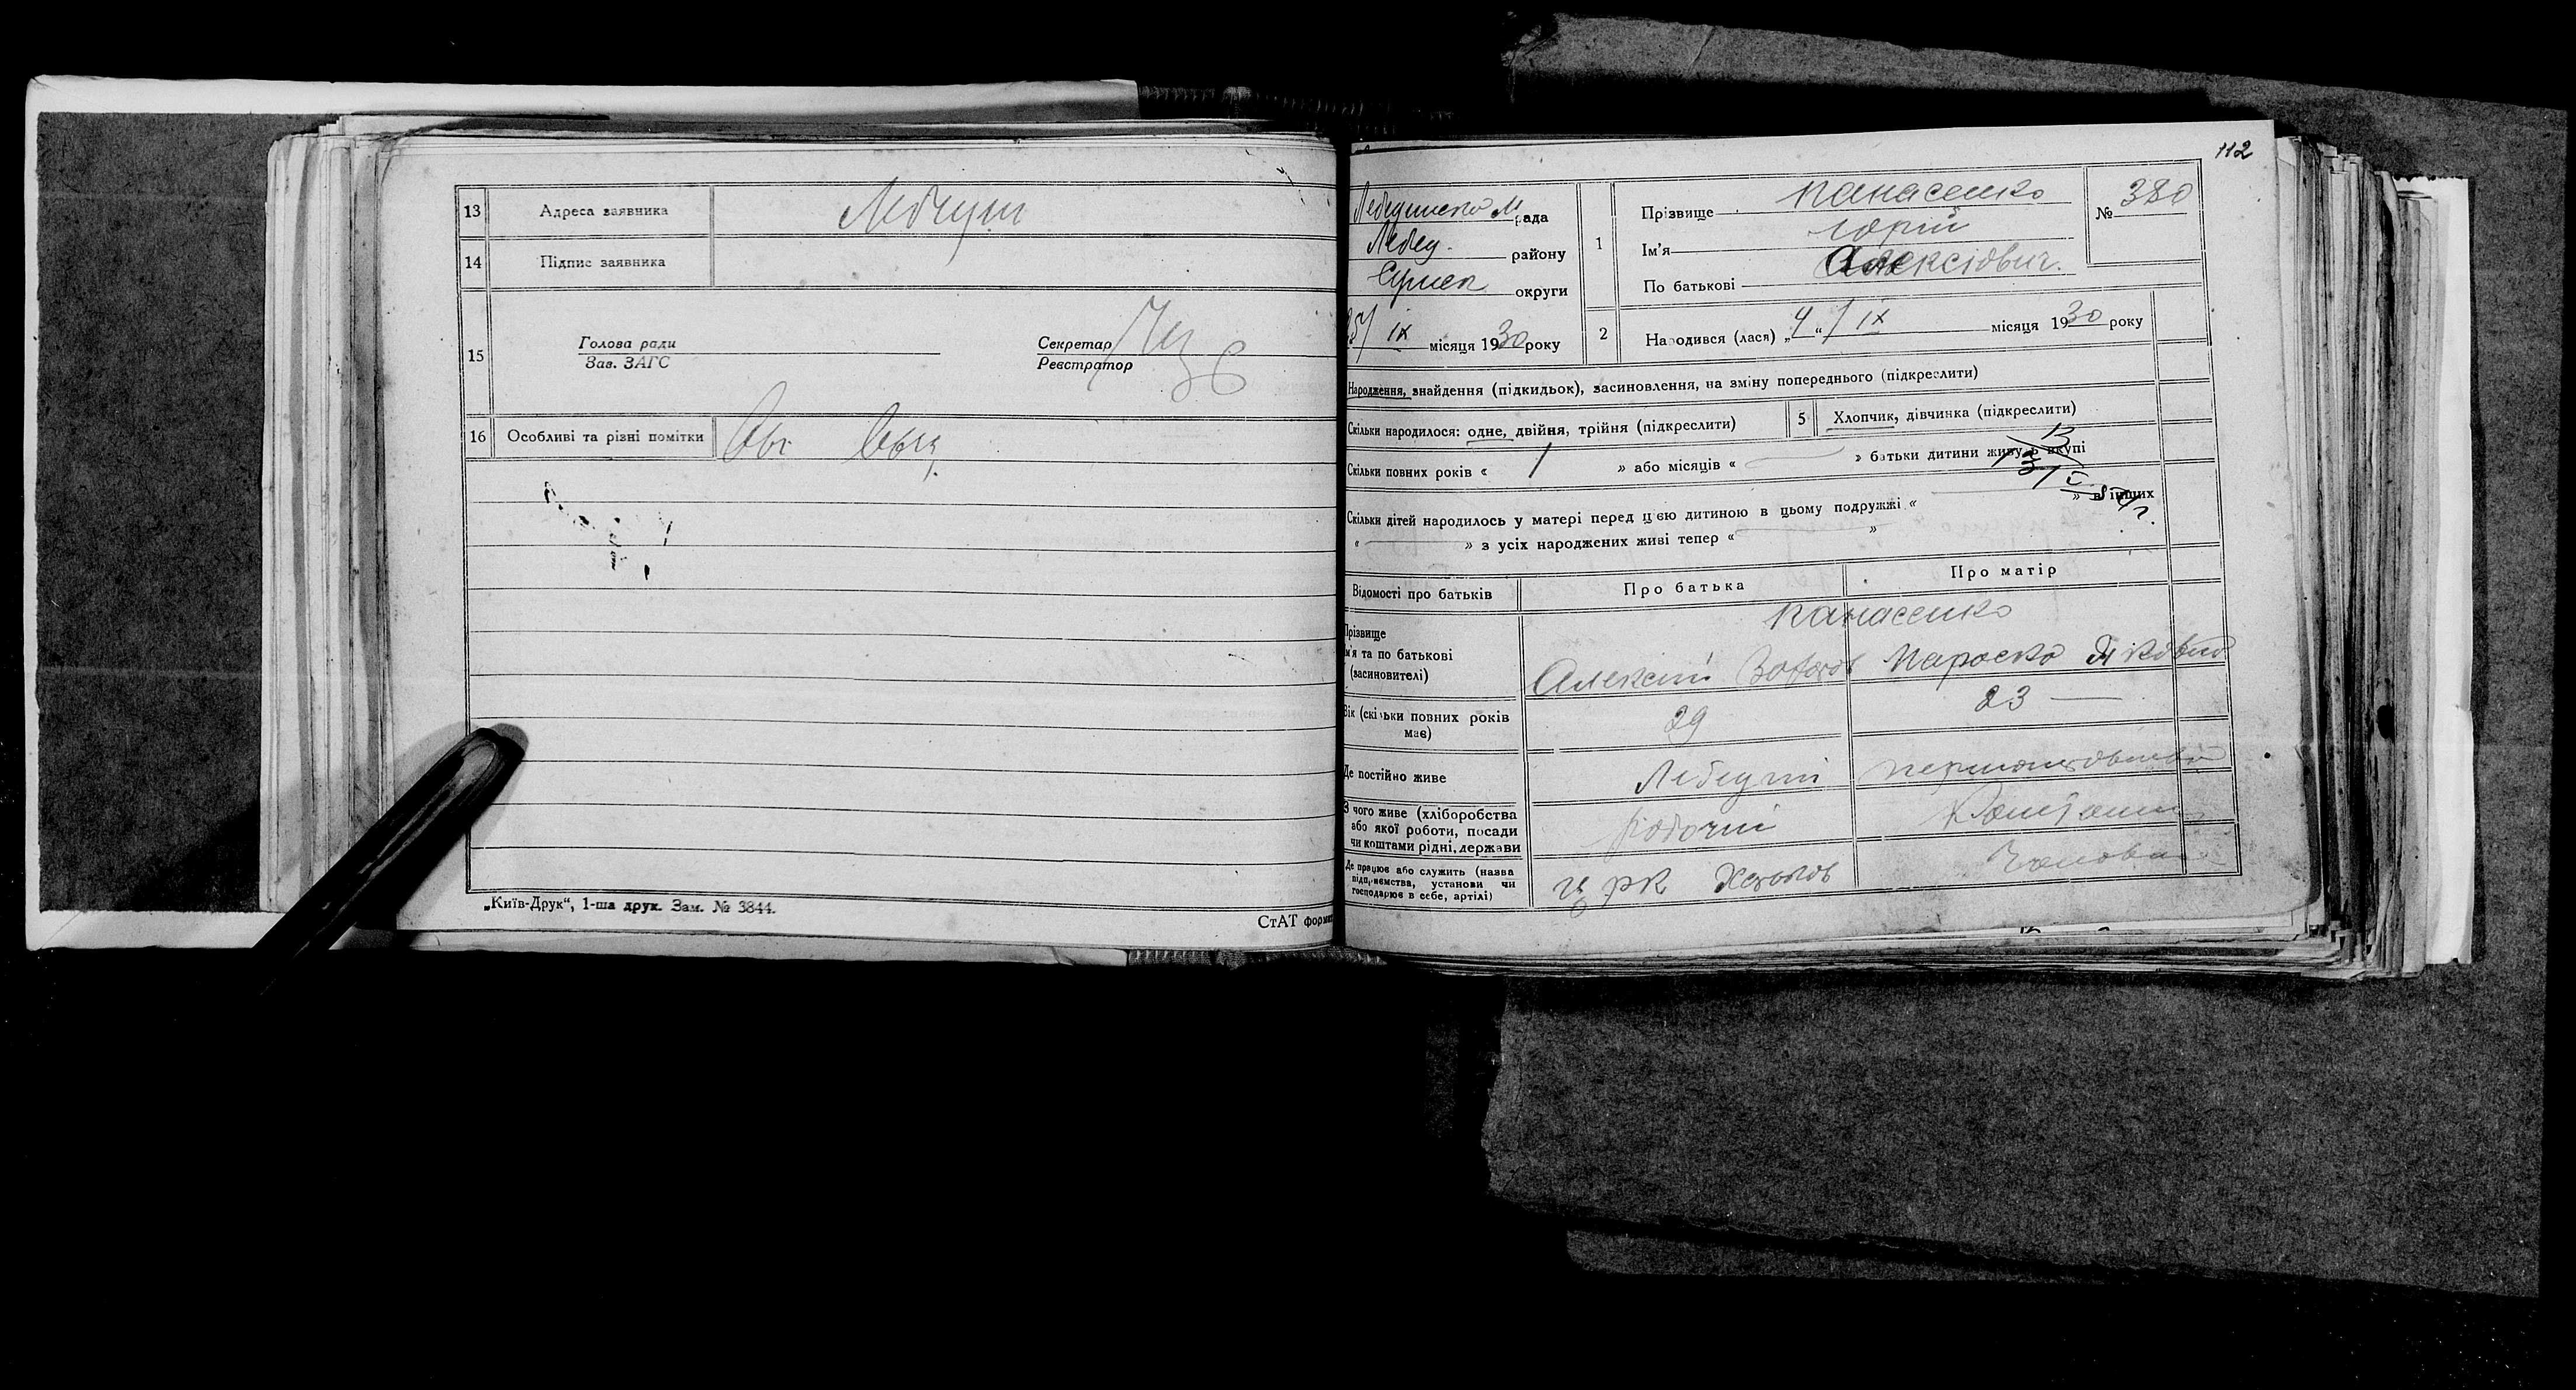 13 Адреса заявника Лебедин
14 Підпис заявника
15 Голова ради Секретар
Зав. ЗАГС Реєстратор
16 Особливі та різні помітки
„Київ-Друк“, 1-ша друк. Зам. № 3844.
СтАТ форма
112
Лебединсько М. рада
Лебед. району
Сумск округи
IX місяця 1930 року
1 Прізвище Панасенко
Ім'я Юрій
По батькові Алексіович.
№ 380
2 Народився (лася) „ 4 “ / IX місяця 1930 року
Народження, знайдення (підкидьок), засиновлення, на зміну попереднього (підкреслити)
Скільки народилося: одне, двійня, трійня (підкреслити) 5 Хлопчик, дівчинка (підкреслити)
Скільки повних років « 1 » або місяців « » батьки дитини живуть вкупі
Скільки дітей народилось у матері перед цією дитиною в цьому подружжі « » в інших
« » з усіх народжених живі тепер « »
Відомості про батьків Про батька Про матір
Прізвище Панасенко
Ім'я та по батькові
(засиновителі) Алексій Пароско
Вік (скільки повних років має) 29 23
Де постійно живе Лебедині
З чого живе (хліборобства або якої роботи, посади чи коштами рідні, держави Робочий Коштами
Де працює або служить (назва підприємства, установи чи господарює в себе, артілі) црк Харьков Чоловіка